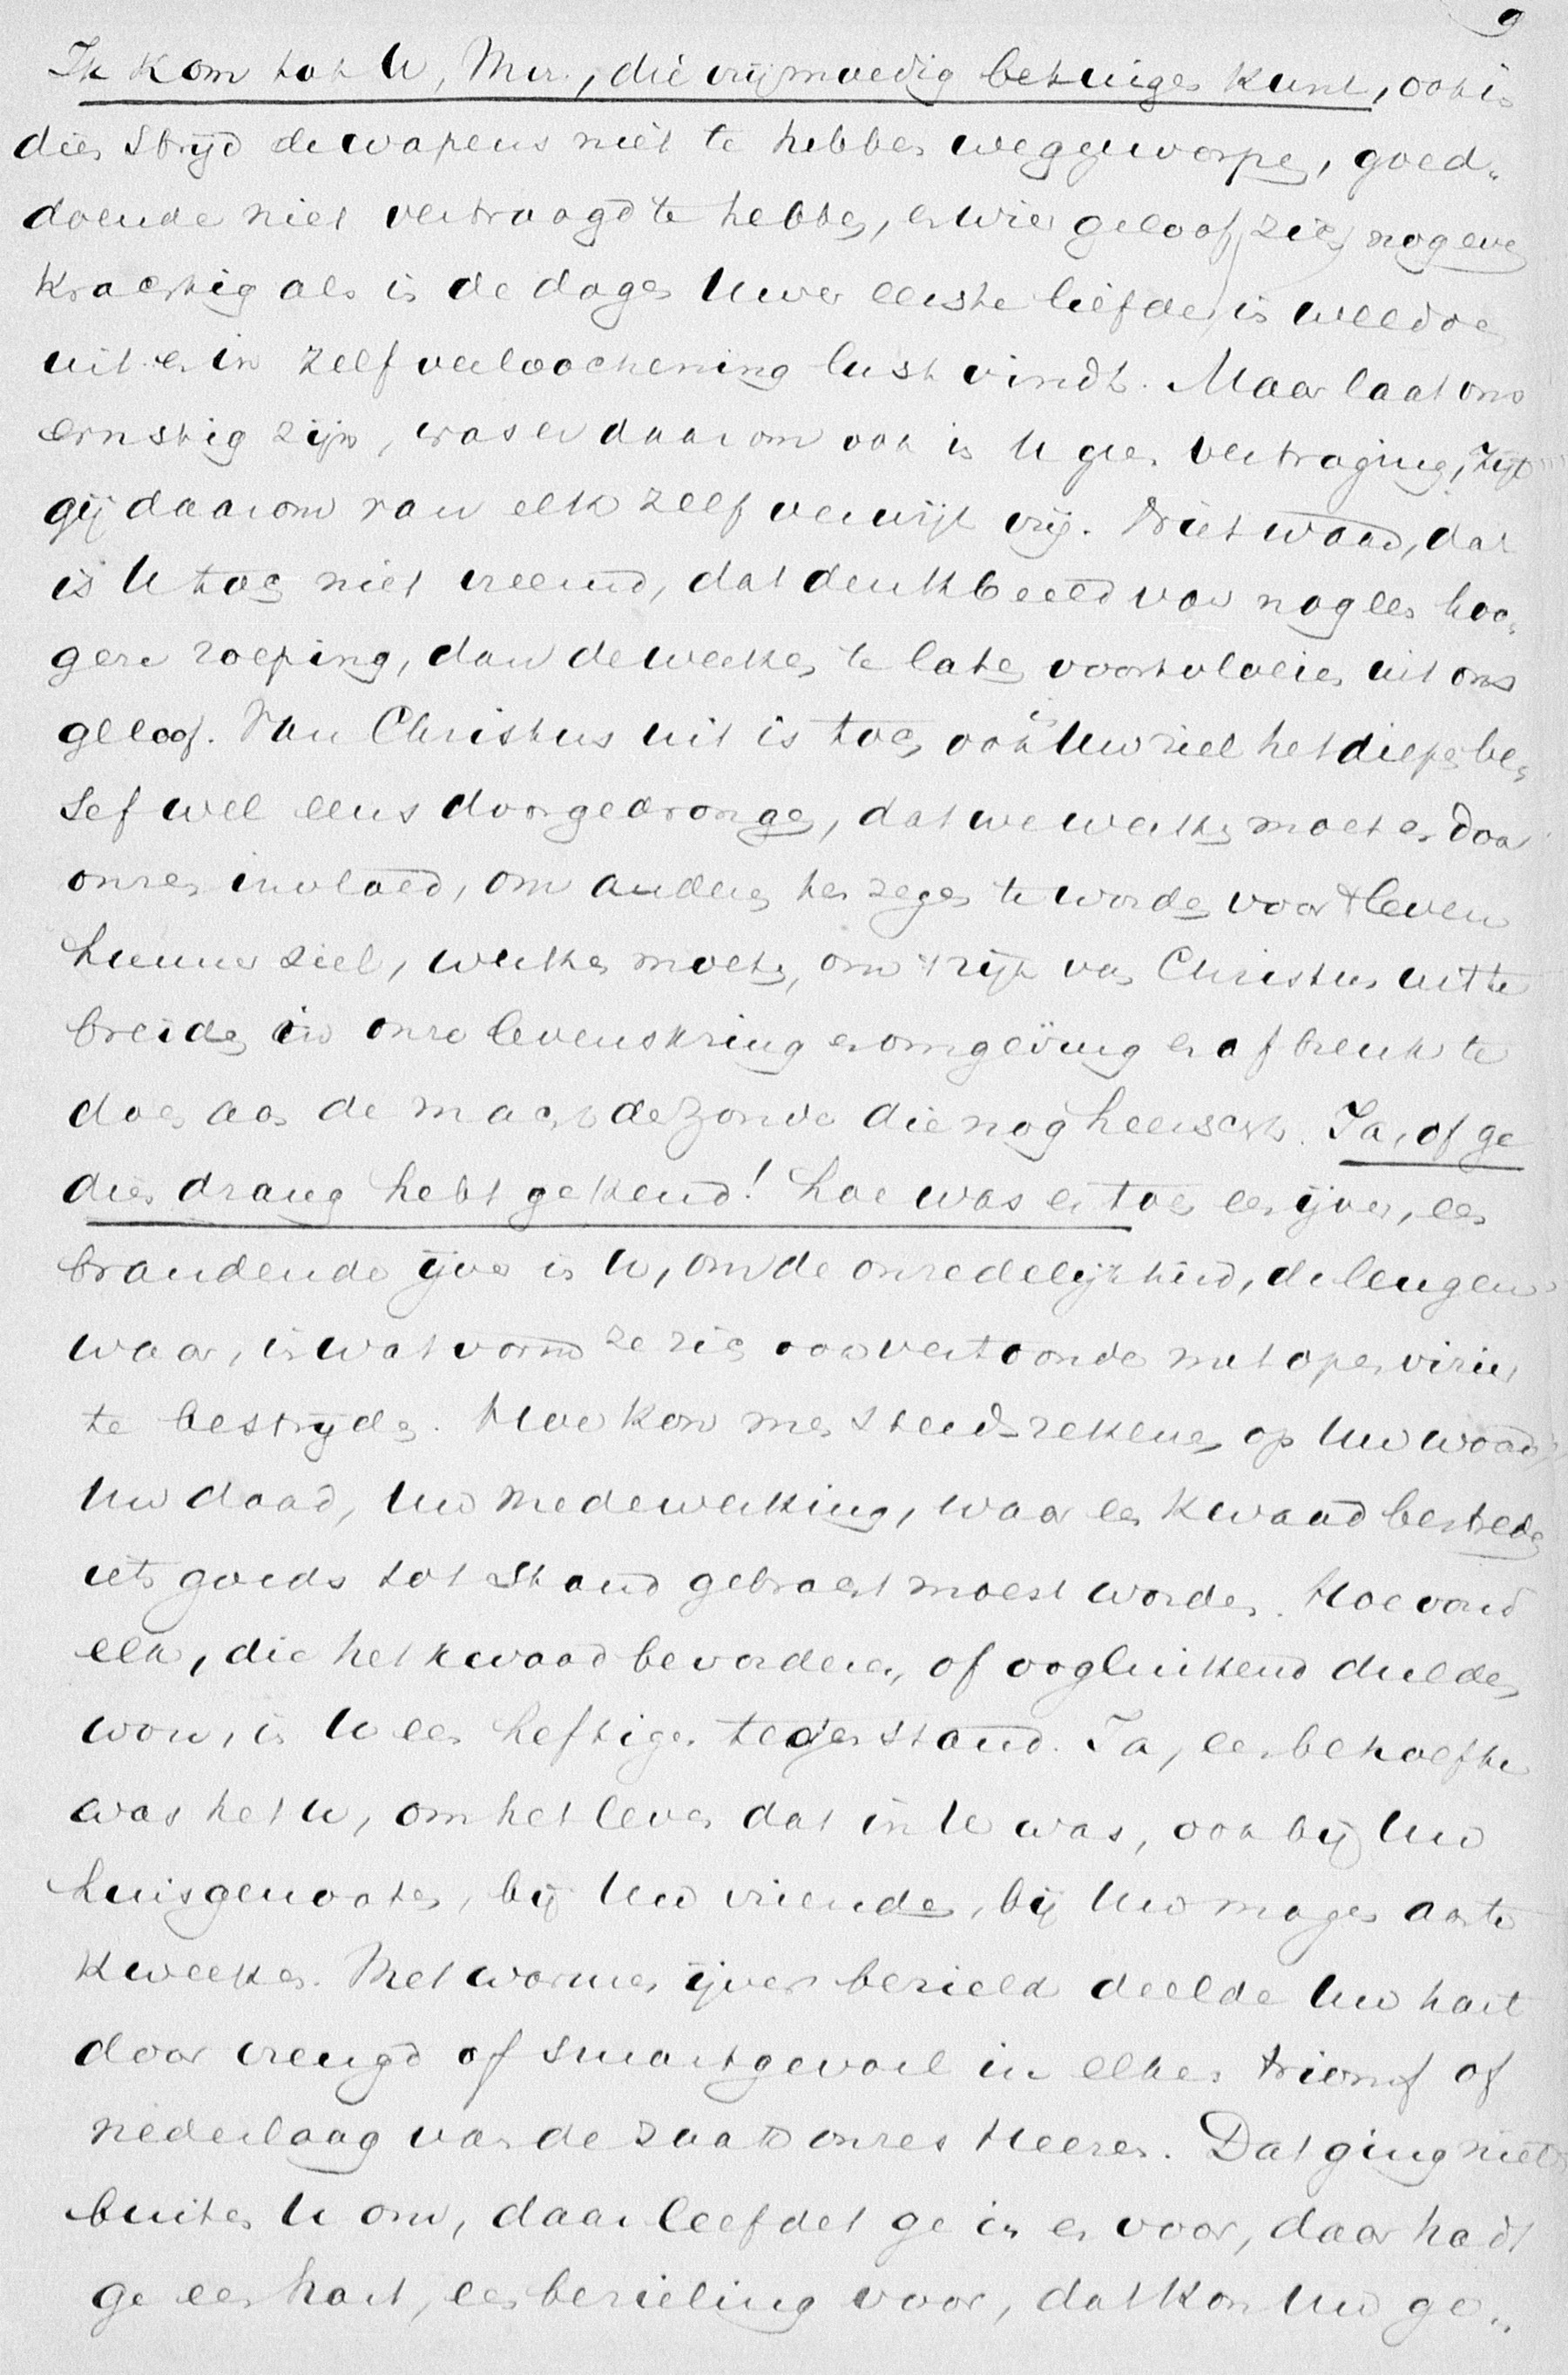 9
Ik kom tot U, M.v., die vrijmoedig betuigen kunt, ook in
dien strijd de wapens niet te hebben weggeworpen, goed-
doende niet vertraagd te hebben, en wier geloof zich nog even
krachtig als in de dagen Uwer eerste liefde in weldoen
uit en in zelfverloochening lust vindt. Maar laat ons
ernstig zijn, was er daarom ook in U geen vertraging, zijt
gij daarom van elk zelfverwijt vrij. Niet waar, dat
is U toch niet vreemd, dat denkbeeld van nog een hoo-
gere roeping, dan de werken te laten voortvloeien uit ons
geloof. Van Christus uit is toch ook in Uw ziel het diepe be-
sef wel eens doorgedrongen, dat we werken moeten door
onzen invloed, om anderen ten zegen te worden voor 't leven
hunner ziel, werken moeten, om 't rijk van Christus uit te
breiden in onze levenskring en omgeving en afbreuk te
doen aan de macht der zonde die nog heerscht. Ja, of ge
dien drang hebt gekend! hoe was er toen een ijver, een
brandende ijver in U, om de onredelijkheid, de leugen
waar, in wat vorm ze zich ook vertoonde met open vizier
te bestrijden. Hoe kon men steeds rekenen op Uw woord
Uw daad, Uw medewerking, waar een kwaad bestreden
iets goeds tot stand gebracht moest worden. Hoe vond
elk, die het kwaad bevorderen, of oogluikend dulden
wou, in U een heftigen tegenstand. Ja, een behoefte
was het U, om het leven dat in U was, ook bij Uw
huisgenooten, bij Uw vrienden, bij Uw magen aan te
kweeken. Met warmen ijver bezield deelde Uw hart
door vreugd of smartgevoel in elken triomf of
nederlaag van de zaak onzes Heeren. Dat ging niet
buiten U om, daar leefdet ge in en voor, daar hadt
ge een hart, een bezieling voor, dat kon Uw ge-